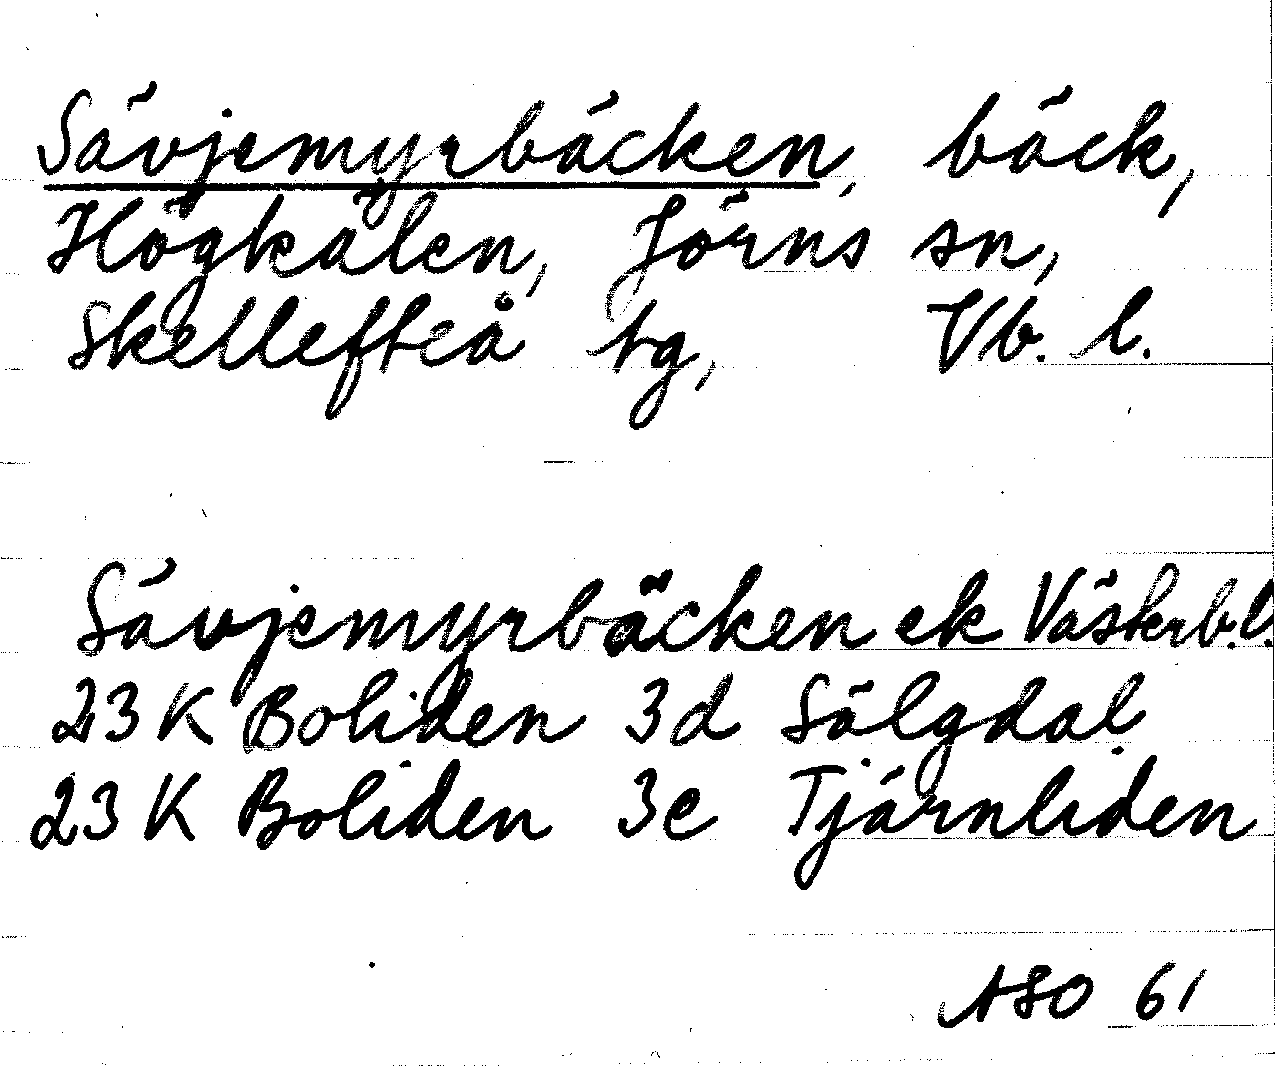 Sävjemyrbäcken, bäck,
Högkälen, Jörns sn,
Skellefteå tg, Vb. l.
Sävjemyrbäcken ek Västerb. l.
23 K Boliden 3d Sälgdal
23 K Boliden 3e Tjärnliden
ASO 61